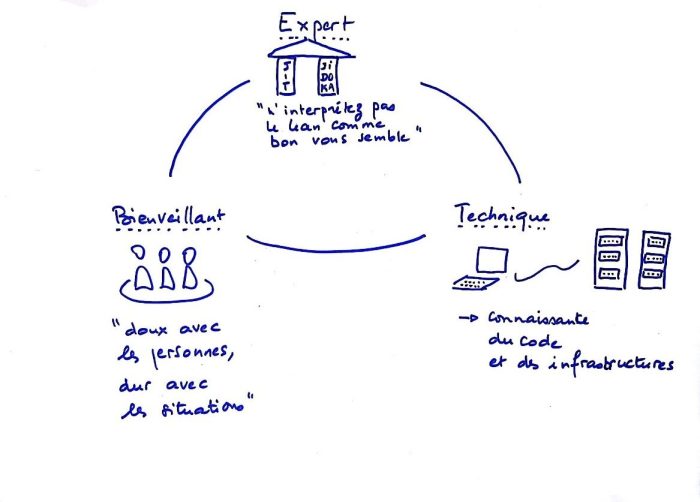 Expert
JIT
JIDOKA
"N'interprétez pas
le lean comme
bon vous semble"
Bienveillant
Technique
"doux avec
les personnes,
dur avec
les situations"
→ connaissante
du code
et des infrastructures